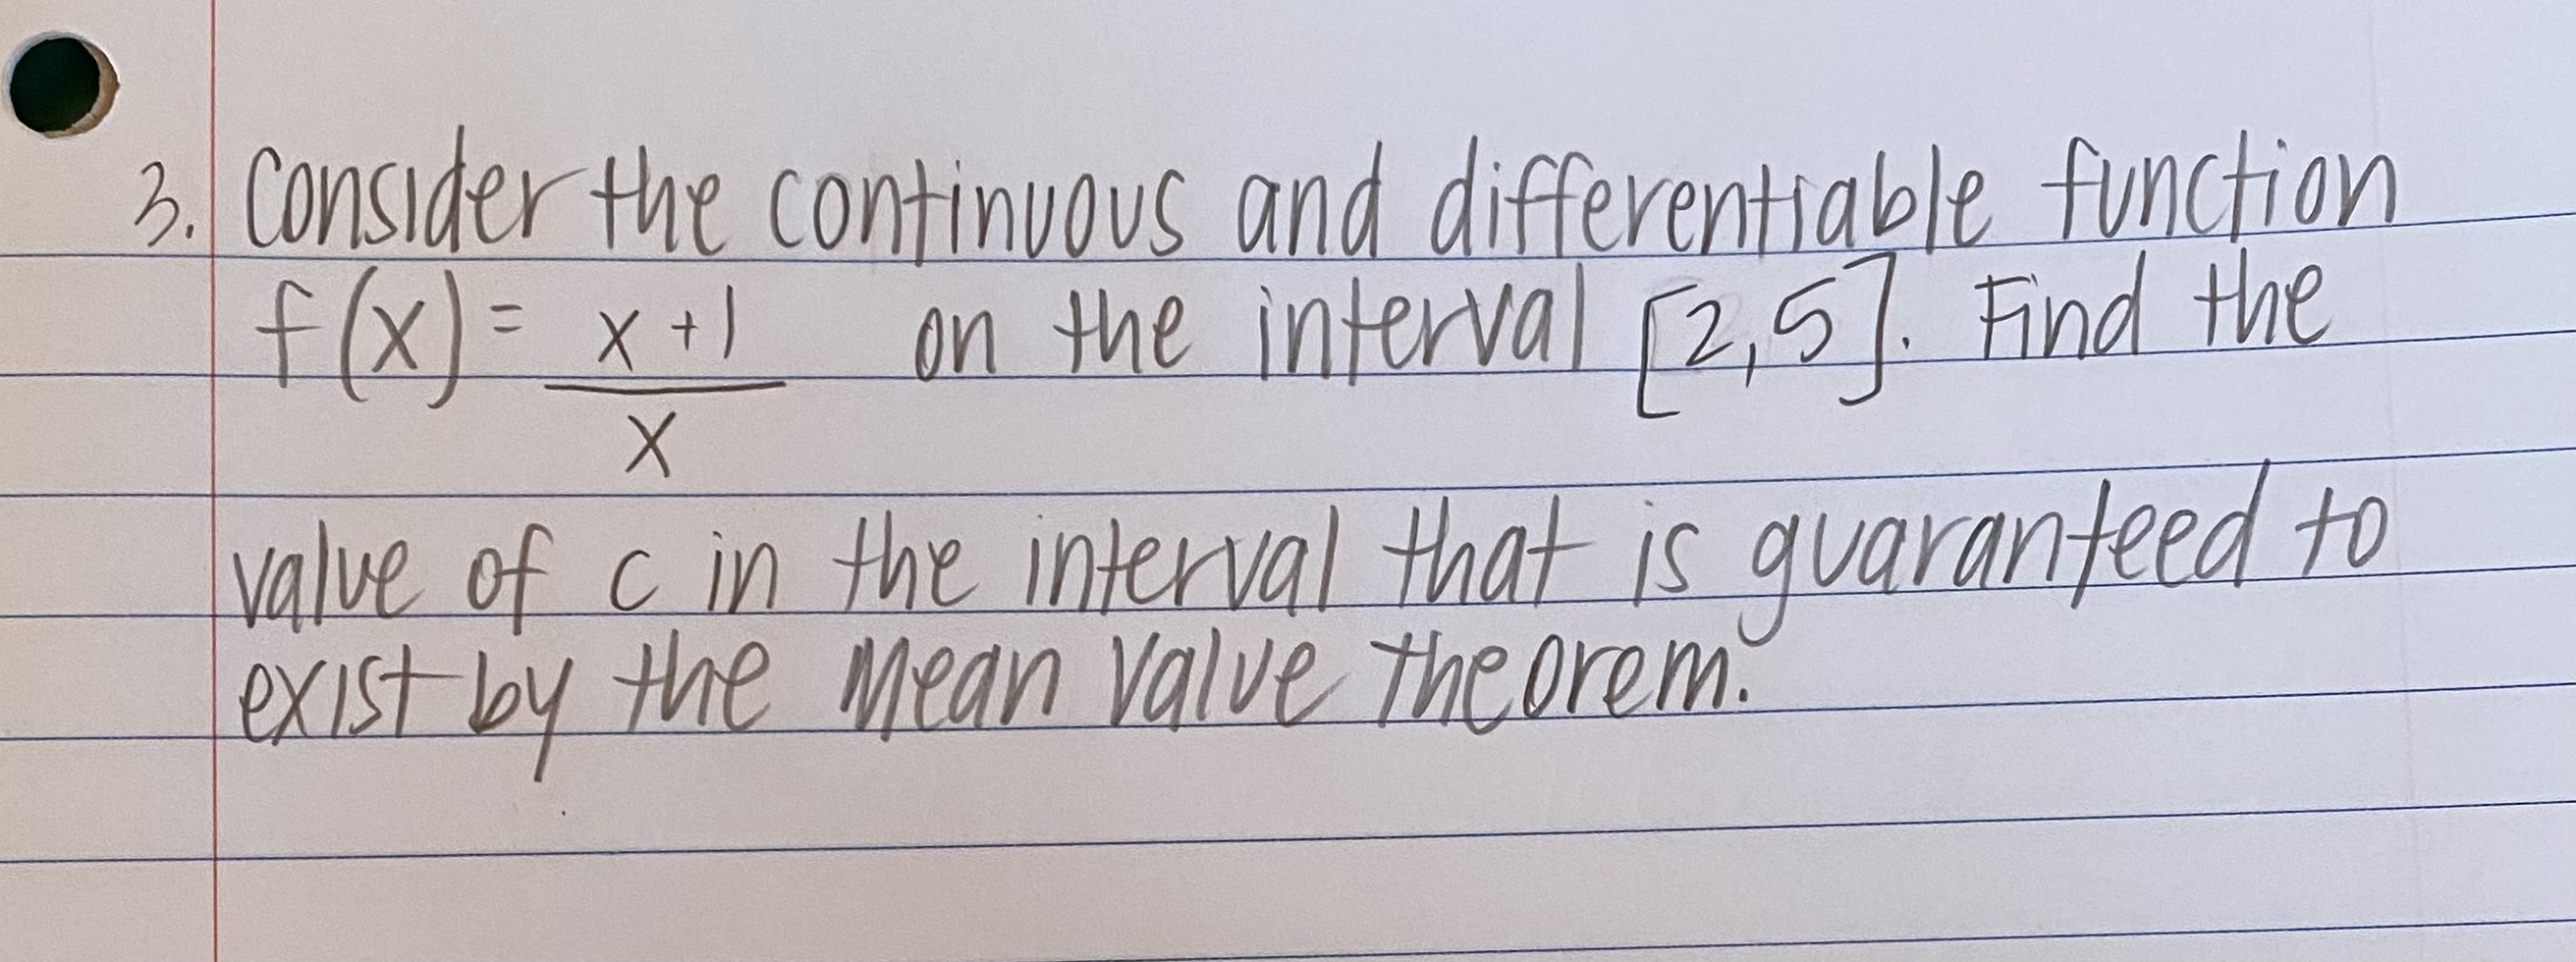 3. Consider the continuous and differentiable function
f(x) = x+1/x on the interval [2,5]. Find the
value of c in the interval that is guaranteed to
exist by the Mean Value theorem.